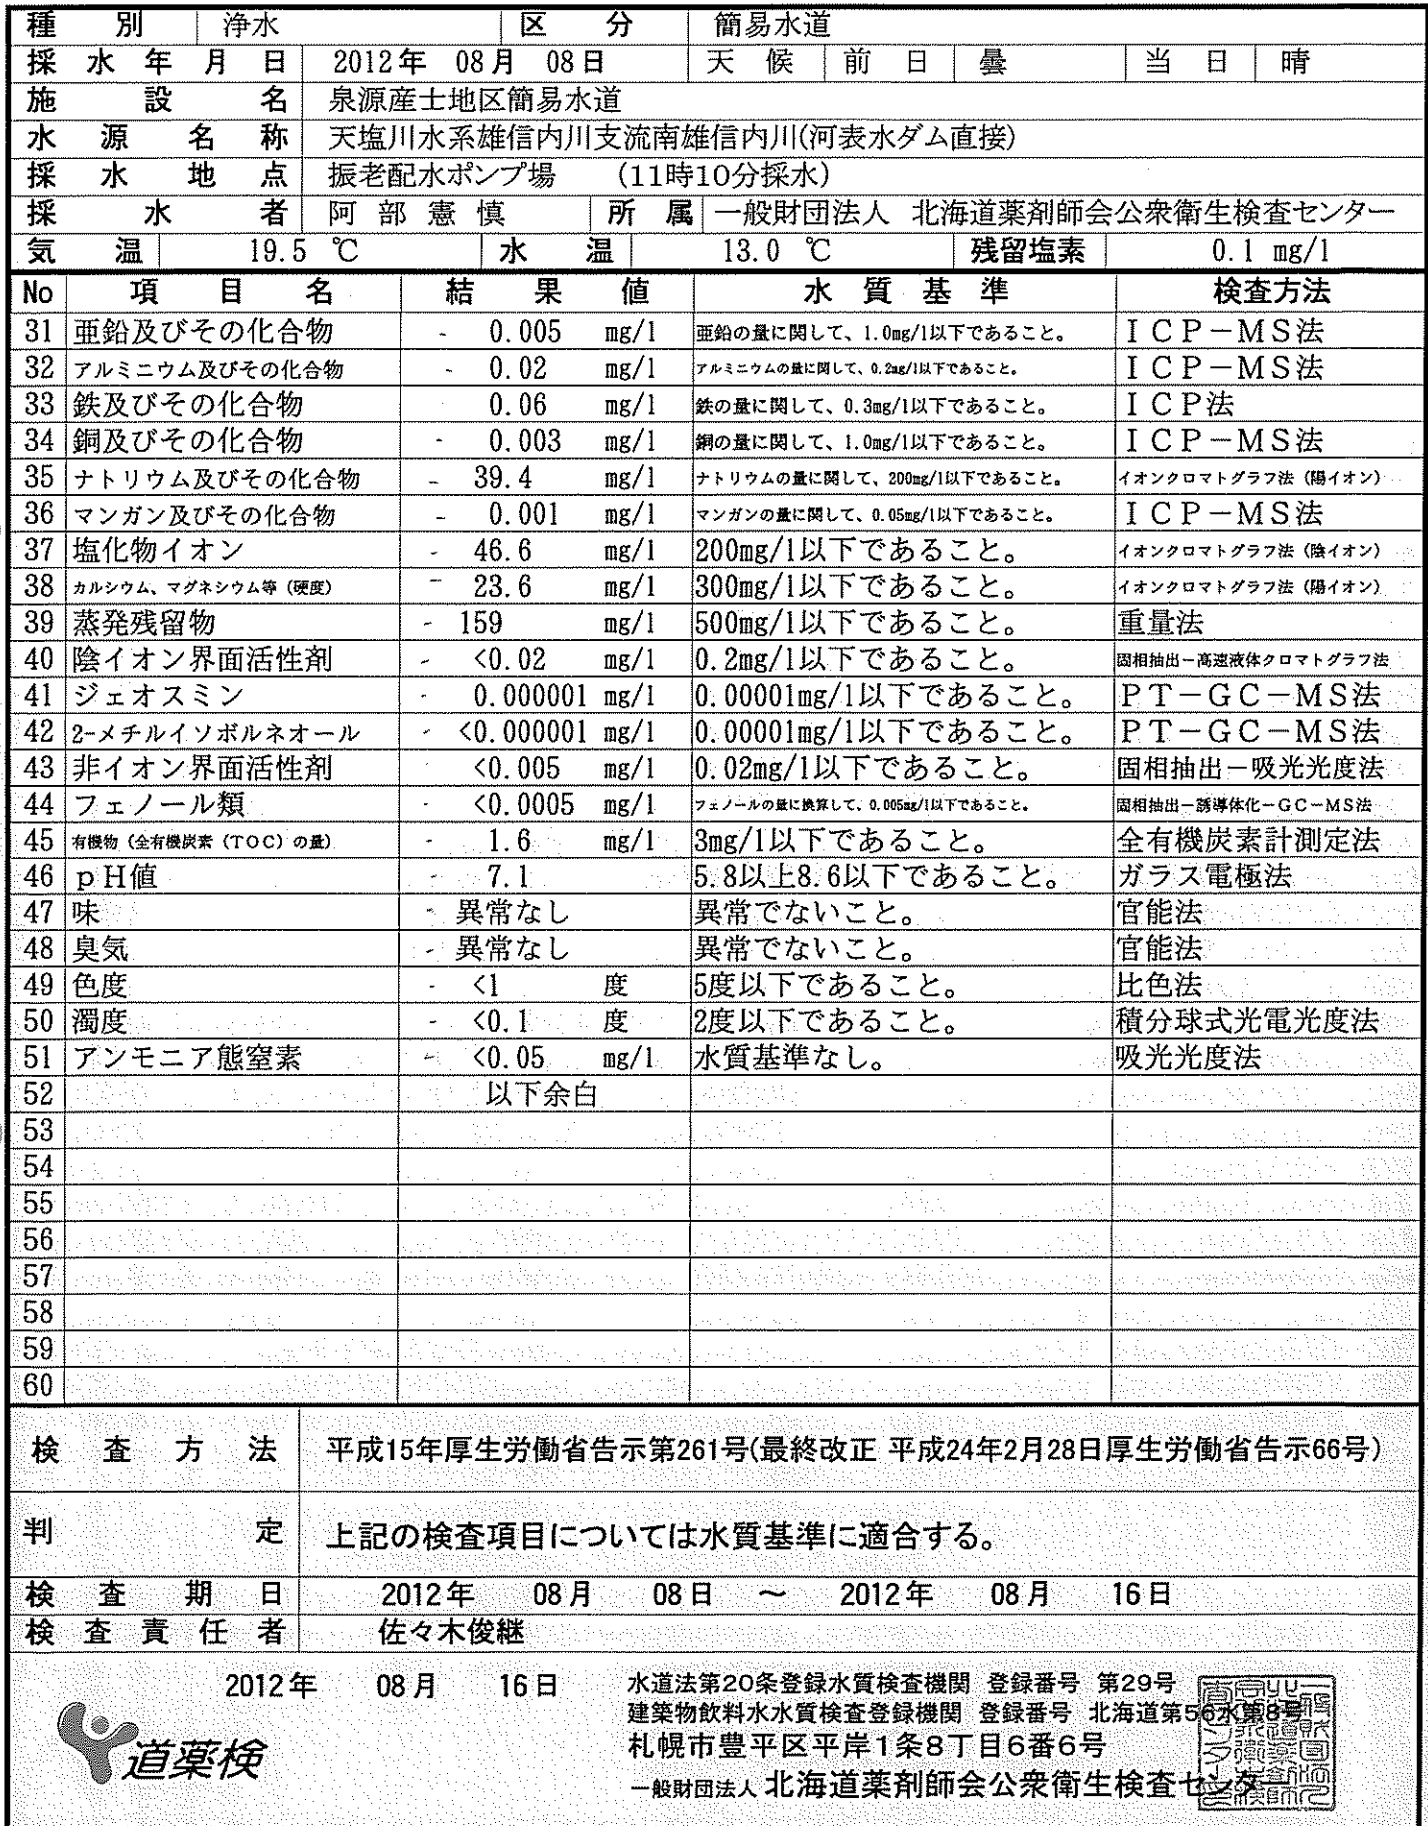 種別 浄水 区分 簡易水道
採水年月日 2012年 08月 08日 天候 前日 曇 当日 晴
施設名 泉源産士地区簡易水道
水源名称 天塩川水系雄信内川支流南雄信内川(河表水ダム直接)
採水地点 振老配水ポンプ場 (11時10分採水)
採水者 阿部憲慎 所属 一般財団法人 北海道薬剤師会公衆衛生検査センター
気温 19.5 ℃ 水温 13.0 ℃ 残留塩素 0.1 mg/l
No 項目名 結果値 水質基準 検査方法
31 亜鉛及びその化合物 - 0.005 mg/l 亜鉛の量に関して、1.0mg/l以下であること。 ICP－MS法
32 アルミニウム及びその化合物 - 0.02 mg/l アルミニウムの量に関して、0.2mg/l以下であること。 ICP－MS法
33 鉄及びその化合物 0.06 mg/l 鉄の量に関して、0.3mg/l以下であること。 ICP法
34 銅及びその化合物 - 0.003 mg/l 銅の量に関して、1.0mg/l以下であること。 ICP－MS法
35 ナトリウム及びその化合物 - 39.4 mg/l ナトリウムの量に関して、200mg/l以下であること。 イオンクロマトグラフ法（陽イオン）
36 マンガン及びその化合物 - 0.001 mg/l マンガンの量に関して、0.05mg/l以下であること。 ICP－MS法
37 塩化物イオン - 46.6 mg/l 200mg/l以下であること。 イオンクロマトグラフ法（陰イオン）
38 カルシウム、マグネシウム等（硬度） - 23.6 mg/l 300mg/l以下であること。 イオンクロマトグラフ法（陽イオン）
39 蒸発残留物 - 159 mg/l 500mg/l以下であること。 重量法
40 陰イオン界面活性剤 - <0.02 mg/l 0.2mg/l以下であること。 固相抽出－高速液体クロマトグラフ法
41 ジェオスミン - 0.000001 mg/l 0.00001mg/l以下であること。 PT－GC－MS法
42 2-メチルイソボルネオール - <0.000001 mg/l 0.00001mg/l以下であること。 PT－GC－MS法
43 非イオン界面活性剤 - <0.005 mg/l 0.02mg/l以下であること。 固相抽出－吸光光度法
44 フェノール類 - <0.0005 mg/l フェノールの量に換算して、0.005mg/l以下であること。 固相抽出－誘導体化－GC－MS法
45 有機物（全有機炭素（TOC）の量） - 1.6 mg/l 3mg/l以下であること。 全有機炭素計測定法
46 pH値 - 7.1 5.8以上8.6以下であること。 ガラス電極法
47 味 - 異常なし 異常でないこと。 官能法
48 臭気 - 異常なし 異常でないこと。 官能法
49 色度 - <1 度 5度以下であること。 比色法
50 濁度 - <0.1 度 2度以下であること。 積分球式光電光度法
51 アンモニア態窒素 - <0.05 mg/l 水質基準なし。 吸光光度法
52 以下余白
53
54
55
56
57
58
59
60
検査方法 平成15年厚生労働省告示第261号(最終改正 平成24年2月28日厚生労働省告示66号)
判定 上記の検査項目については水質基準に適合する。
検査期日 2012年 08月 08日 ～ 2012年 08月 16日
検査責任者 佐々木俊継
2012年 08月 16日
水道法第20条登録水質検査機関 登録番号 第29号
建築物飲料水水質検査登録機関 登録番号 北海道第56水第8号
札幌市豊平区平岸1条8丁目6番6号
一般財団法人 北海道薬剤師会公衆衛生検査センター
道薬検